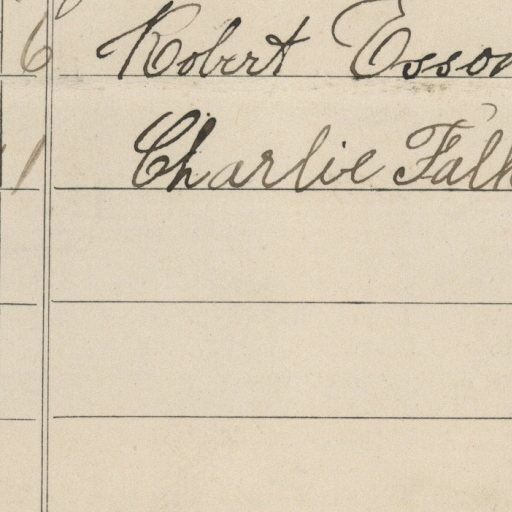 6 Robert Esson
1 Charlie Falk